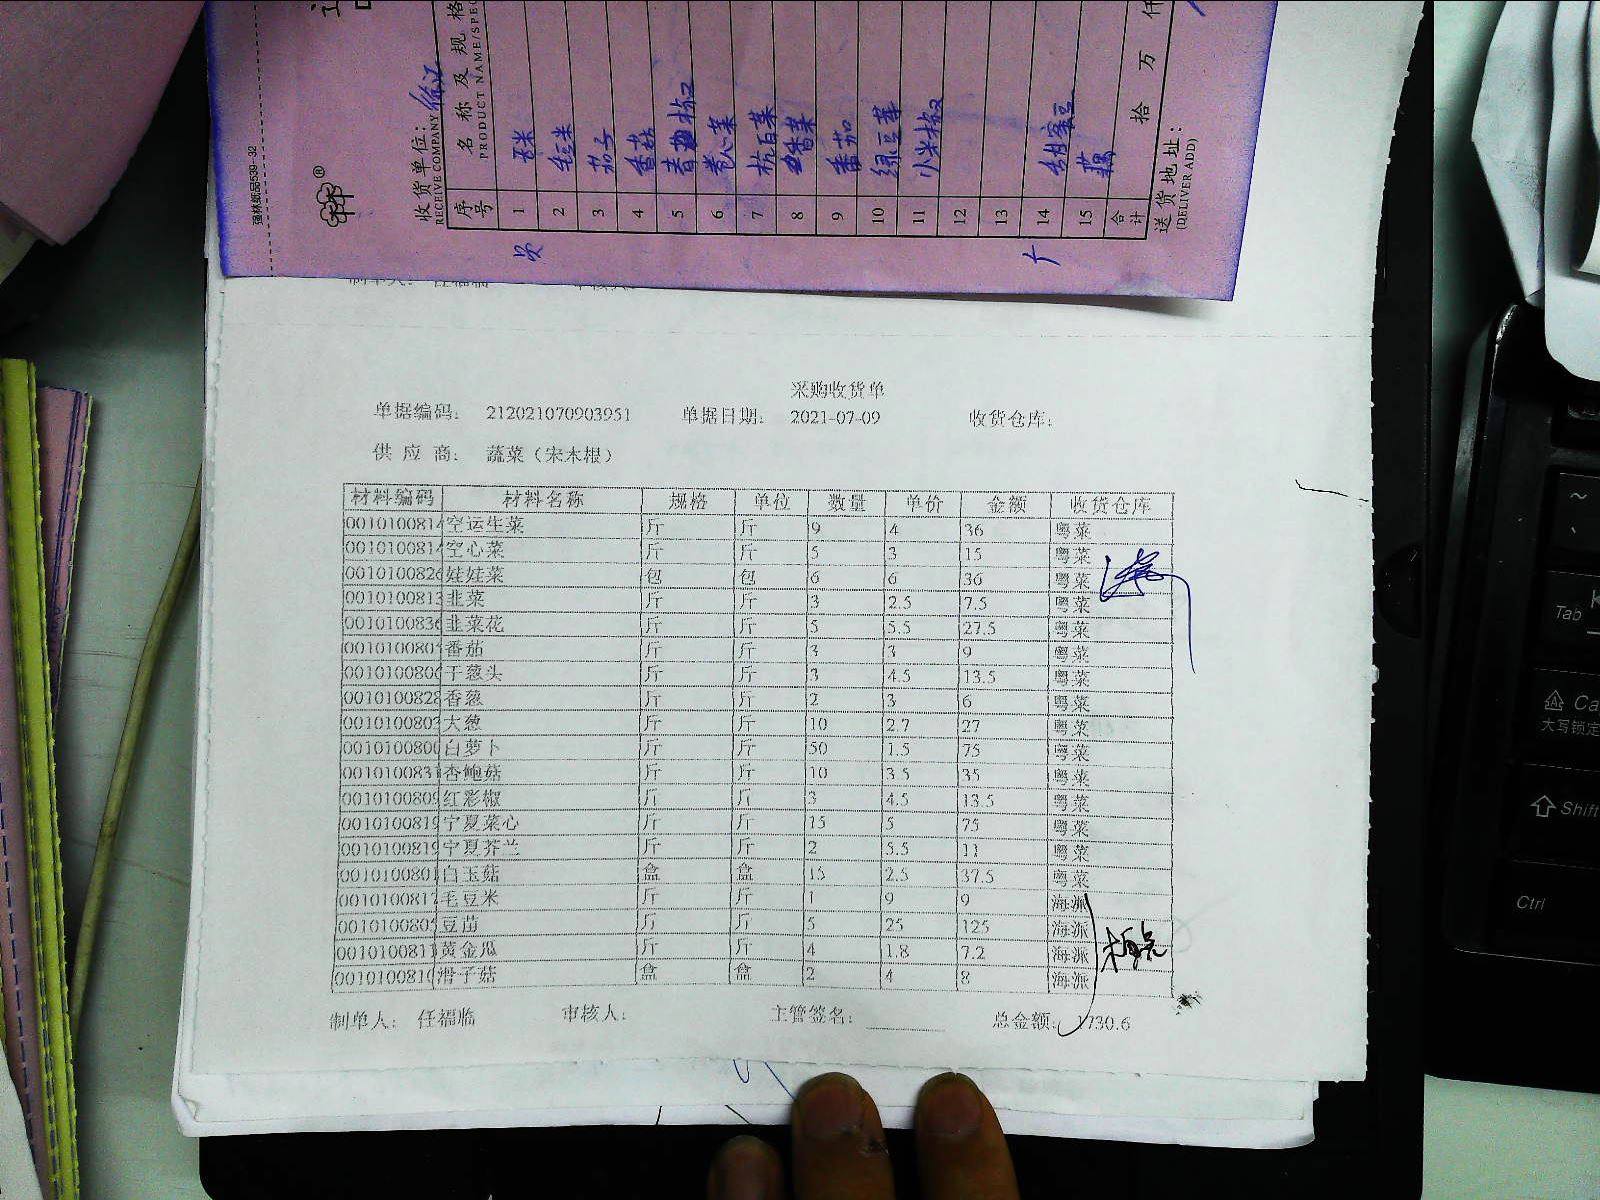 强林纸品539-32
®
收货单位：
RECEIVE COMPANY
序号 名称及规格
PRODUCT NAME/SPEC
1
2 毛豆米
3 茄子
4 香菇
5
6 卷心菜
7 杭白菜
8 香菜
9 番茄
10 绿豆芽
11 小米椒
12
13
14
15 藕
合计 拾 万 仟
送货地址：
(DELIVER ADD)
制单人： 任福临
采购收货单
单据编码： 212021070903951 单据日期： 2021-07-09 收货仓库：
供 应 商： 蔬菜（宋木根）
材料编码 材料名称 规格 单位 数量 单价 金额 收货仓库
0010100814 空运生菜 斤 斤 9 4 36 粤菜
0010100814 空心菜 斤 斤 5 3 15 粤菜
0010100826 娃娃菜 包 包 6 6 36 粤菜
0010100813 韭菜 斤 斤 3 2.5 7.5 粤菜
0010100836 韭菜花 斤 斤 5 5.5 27.5 粤菜
001010080 番茄 斤 斤 3 3 9 粤菜
0010100806 干葱头 斤 斤 3 4.5 13.5 粤菜
0010100828 香葱 斤 斤 2 3 6 粤菜
0010100803 大葱 斤 斤 10 2.7 27 粤菜
0010100800 白萝卜 斤 斤 50 1.5 75 粤菜
0010100831 杏鲍菇 斤 斤 10 3.5 35 粤菜
0010100809 红彩椒 斤 斤 3 4.5 13.5 粤菜
0010100819 宁夏菜心 斤 斤 15 5 75 粤菜
0010100819 宁夏芥兰 斤 斤 2 5.5 11 粤菜
0010100801 白玉菇 盒 盒 15 2.5 37.5 粤菜
0010100817 毛豆米 斤 斤 1 9 9 海派
001010080 豆苗 斤 斤 5 25 125 海派
0010100811 黄金瓜 斤 斤 4 1.8 7.2 海派
0010100810 滑子菇 盒 盒 2 4 8 海派
制单人： 任福临 审核人： 主管签名： 总金额： 1730.6
Tab
大写锁定
Shift
Ctrl